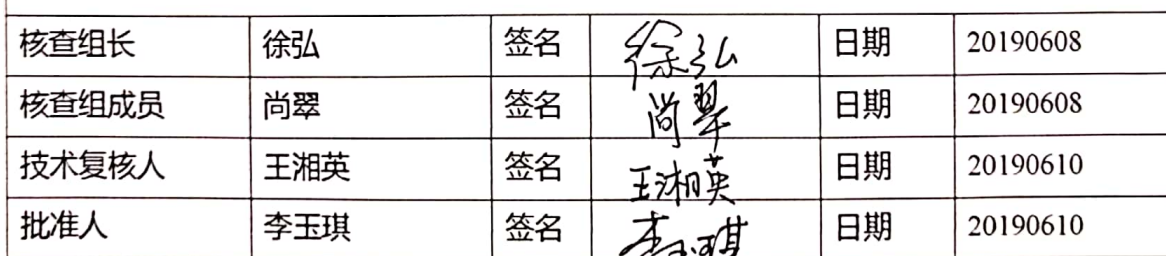 核查组长 徐弘 签名 徐弘 日期 20190608
核查组成员 尚翠 签名 尚翠 日期 20190608
技术复核人 王湘英 签名 王湘英 日期 20190610
批准人 李玉琪 签名 李玉琪 日期 20190610